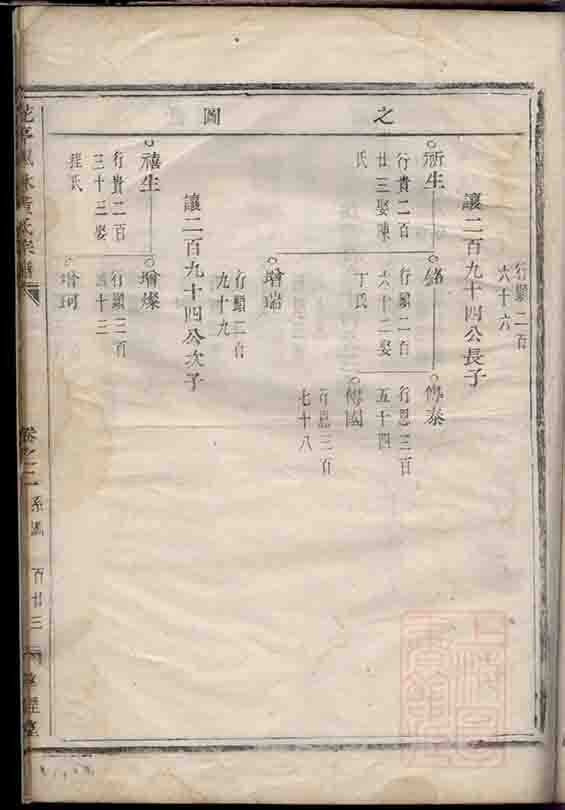 之
圖
行顯二百
六十六
讓二百九十四公長子
祈生
行貴二百
廿三娶陳
氏
鍺
行顯二百
六十二娶
丁氏
傳泰
行恩三百
五十四
傳國
行恩三百
七十八
增瑞
行顯三百
九十九
讓二百九十四公次子
禧生
行貴二百
三十三娶
程氏
增燦
行顯三百
四十三
增珂
黃氏宗譜
卷之二
系圖
百廿三